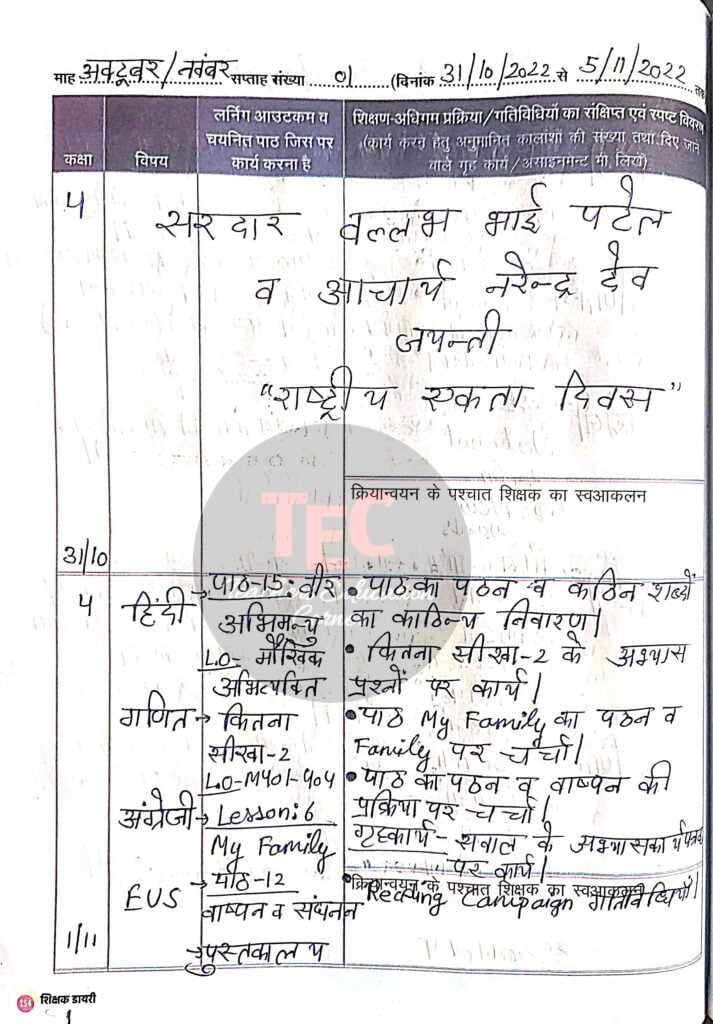 माह अक्टूबर/नवंबर सप्ताह संख्या 01 (दिनांक 31/10/2022 से 5/11/2022 तक
कक्षा
विषय
लर्निंग आउटकम व
चयनित पाठ जिस पर
कार्य करना है
शिक्षण-अधिगम प्रक्रिया/गतिविधियों का संक्षिप्त एवं स्पष्ट विवरण
(कार्य करने हेतु अनुमानित कालांशों की संख्या तथा दिए जाने
वाले गृह कार्य/असाइनमेन्ट भी लिखें)
4 सरदार वल्लभ भाई पटेल
व आचार्य नरेन्द्र देव
जयन्ती
"राष्ट्रीय एकता दिवस"
क्रियान्वयन के पश्चात शिक्षक का स्वआकलन
31/10
TEC
4
हिंदी
पाठ-15: वीर
अभिमन्यु
LO- मौखिक
अभिव्यक्ति
गणित → कितना
सीखा-2
LO-M401-404
अंग्रेजी → Lesson: 6
My Family
EVS
→ पाठ-12
वाष्पन व संघनन
→ पुस्तकालय
1/11
• पाठ का पठन व कठिन शब्दों
का काठिन्य निवारण।
• कितना सीखा-2 के अभ्यास
प्रश्नों पर कार्य।
• पाठ My Family का पठन व
Family पर चर्चा।
• पाठ का पठन व वाष्पन की
प्रक्रिया पर चर्चा।
गृहकार्य- सवाल के अभ्यासकार्यपत्रक
" पर कार्य।
क्रियान्वयन के पश्चात शिक्षक का स्वआकलन
• Reading Campaign गतिविधियाँ।
154 शिक्षक डायरी